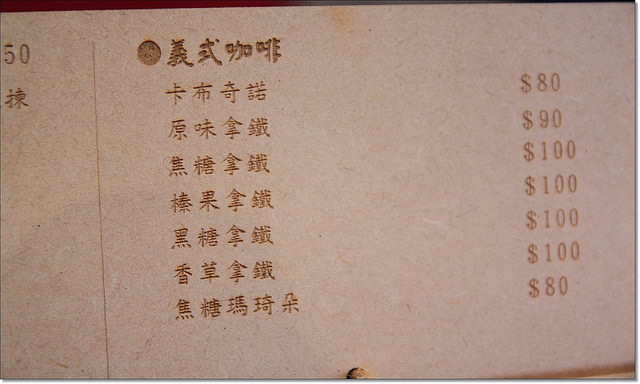 50
揀
●義式咖啡
卡布奇諾 $80
原味拿鐵 $90
焦糖拿鐵 $100
榛果拿鐵 $100
黑糖拿鐵 $100
香草拿鐵 $100
焦糖瑪琦朵 $80